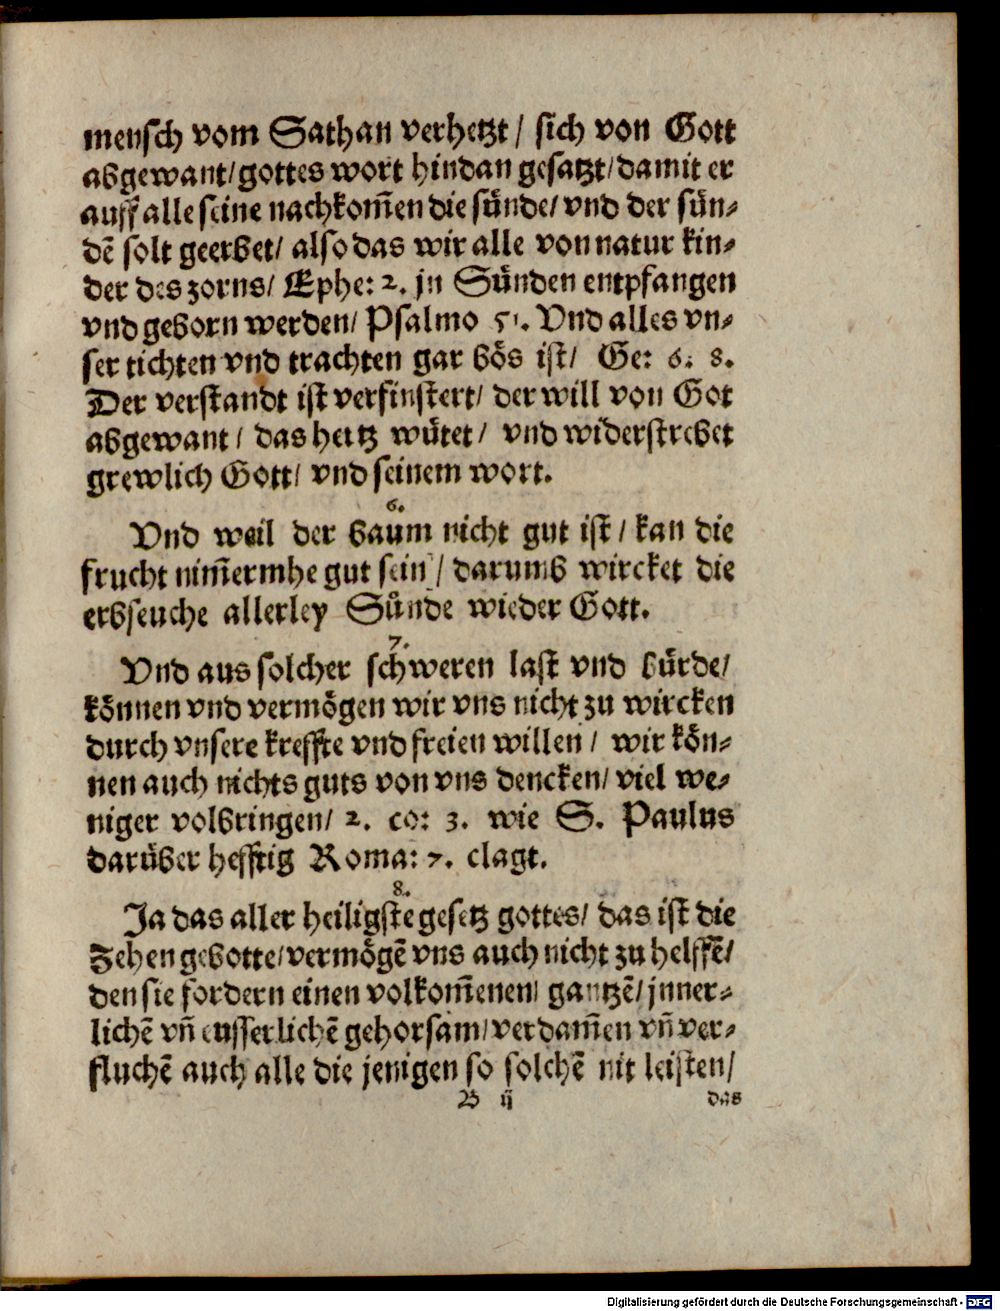 mensch vom Sathan verhetzt / sich von Gott
abgewant/gottes wort hindan gesatzt/damit er
auff alle seine nachkom̃en die sünde/ vnd der sün⸗
dẽ solt geerbet/ also das wir alle von natur kin⸗
der des zorns/ Ephe: 2. jn Sünden entpfangen
vnd geborn werden/ Psalmo 51. Vnd alles vn⸗
ser tichten vnd trachten gar bös ist/ Ge: 6. 8.
Der verstandt ist verfinstert/ der will von Got
abgewant / das hertz wütet / vnd widerstrebet
grewlich Gott/ vnd seinem wort.
6.
Vnd weil der baum nicht gut ist / kan die
frucht nim̃ermhe gut sein / darumb wircket die
erbseuche allerley Sünde wieder Gott.
7.
Vnd aus solcher schweren last vnd bürde/
können vnd vermögen wir vns nicht zu wircken
durch vnsere kreffte vnd freien willen / wir kön⸗
nen auch nichts guts von vns dencken/ viel we⸗
niger volbringen/ 2. co: 3. wie S. Paulus
darüber hefftig Roma: 7. clagt.
8.
Ja das aller heiligste gesetz gottes/ das ist die
Zehen gebotte/vermögẽ vns auch nicht zu helffẽ/
den sie fordern einen volkom̃enen/ gantzẽ/ jnner⸗
lichẽ vñ eusserlichẽ gehorsam/ verdam̃en vñ ver⸗
fluchẽ auch alle die jenigen so solchẽ nit leisten/
B ij das
Digitalisierung gefördert durch die Deutsche Forschungsgemeinschaft - DFG